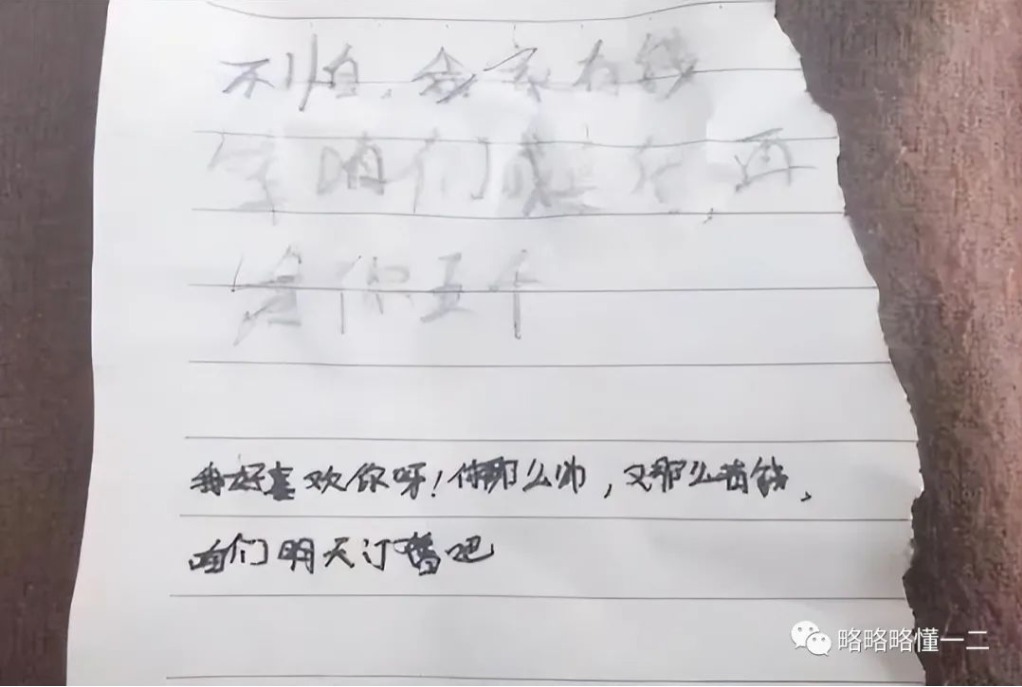 不 家有钱
等咱们 再
你五个
我好喜欢你呀！你那么帅，又那么有钱，
咱们明天订婚吧
略略略懂一二